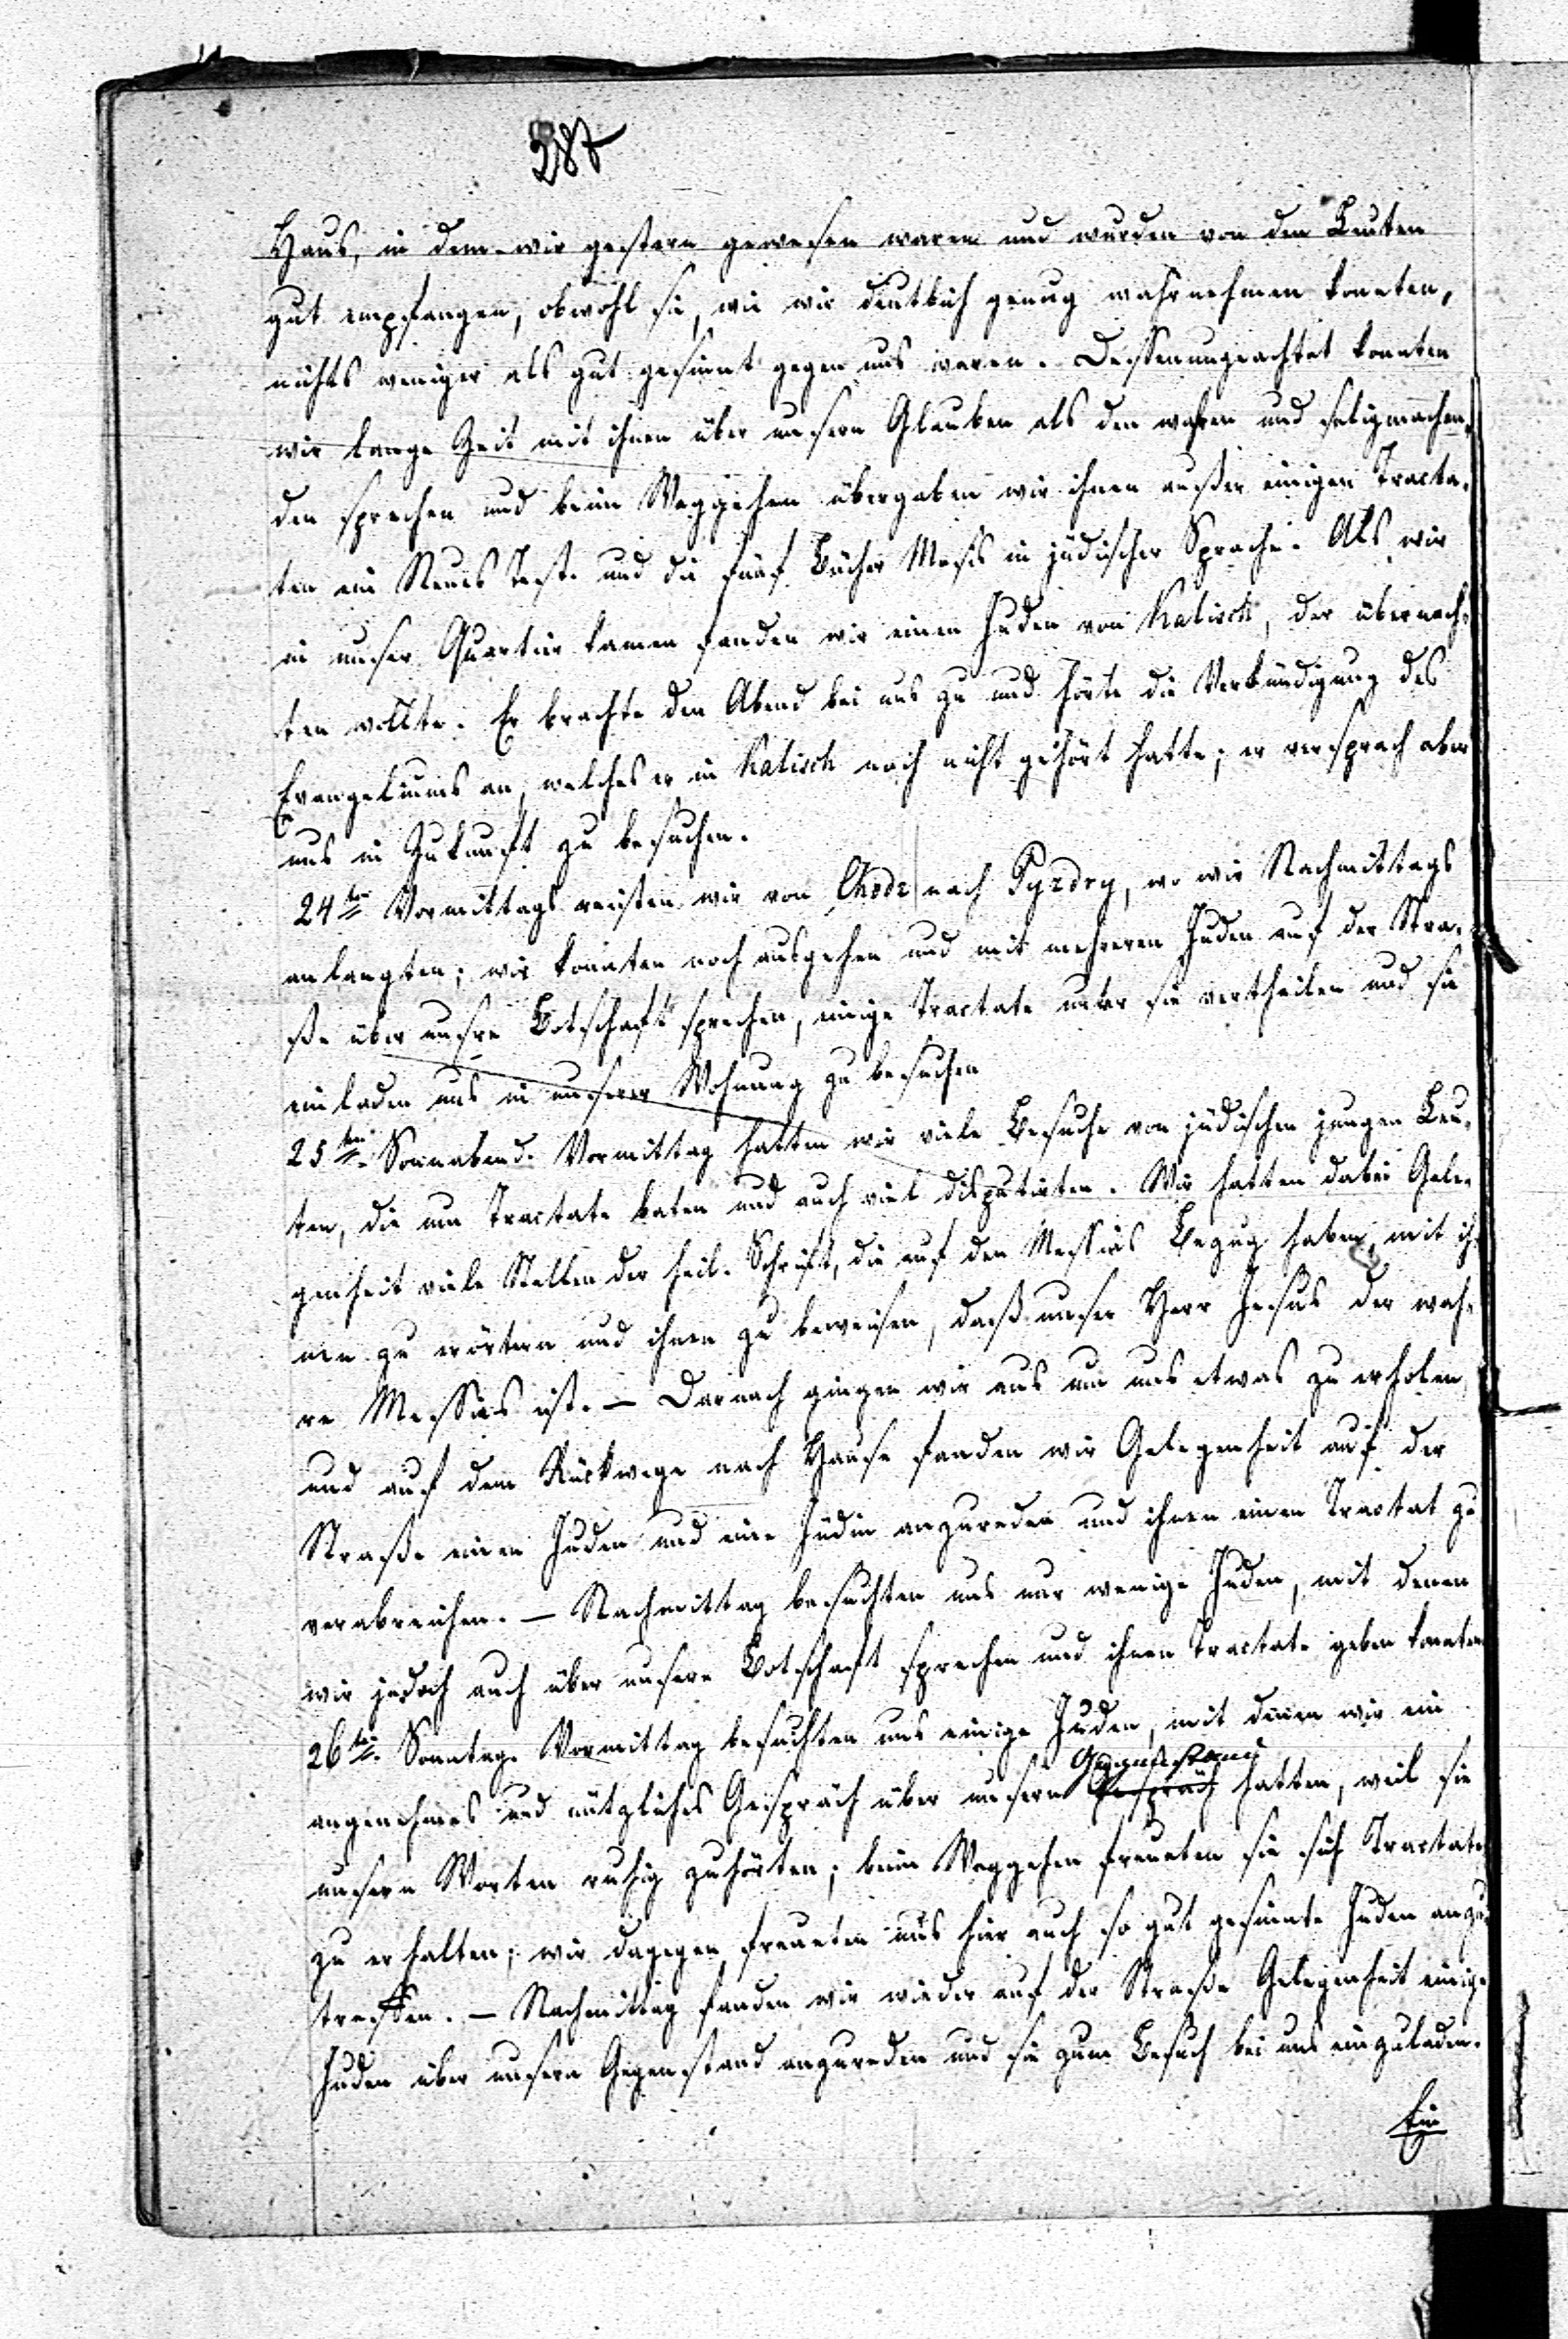 287
Haus, in dem wir gestern gewesen waren und wurden von den Leuten
gut empfangen, obwohl sie, wie wir deutlich genug wahrnehmen konnten,
nichts weniger als gut gesinnt gegen uns waren. Dessenungeachtet konnten
wir lange Zeit mit ihnen über unsern Glauben als den wahren und seligmachen-
den sprechen und beim Weggehen übergaben wir ihnen außer einigen Tracta-
ten ein Neues Test. und die fünf Bücher Mosis in jüdischer Sprache. Als wir
in unser Quartier kamen fanden wir einen Juden von Kalisch, der übernach-
ten wollte. Er brachte den Abend bei uns zu und hörte die Verkündigung des
Evangeliums an, welches er in Kalisch noch nicht gehört hatte; er versprach aber
uns in Zukunft zu besuchen.
24ten Vormittags reisten wir von Chodz nach Pyzdry, wo wir Nachmittags
anlangten; wir konnten noch ausgehen und mit mehreren Juden auf der Stra-
ße über unsre Botschaft sprechen, einige Tractate unter sie vertheilen und sie
einladen uns in unserer Wohnung zu besuchen
25ten Sonnabend. Vormittag hatten wir viele Besuche von jüdischen jungen Leu-
ten, die um Tractate baten und auch viel disputirten. Wir hatten dabei Gele-
genheit viele Stellen der heil. Schrift, die auf den Messias Bezug haben, mit ih-
nen zu erörtern und ihnen zu beweisen, daß unser Herr Jesus der wah-
re Messias ist. — Darnach gingen wir aus um uns etwas zu erholen
und auf dem Rückwege nach Hause fanden wir Gelegenheit auf der
Straße einen Juden und eine Jüdin anzureden und ihnen einen Tractat zu
verabreichen. — Nachmittag besuchten uns nur wenige Juden, mit denen
wir jedoch auch über unsere Botschaft sprechen und ihnen Tractate geben konnten
26ten Sonntag. Vormittag besuchten uns einige Juden, mit denen wir ein
Gegenstand
angenehmes und nützliches Gespräch über unsern Gespräch hatten, weil sie
unsern Worten ruhig zuhörten; beim Weggehen freueten sie sich Tractate
zu erhalten; wir dagegen freueten uns hier auch so gut gesinnte Juden anzu-
treffen. — Nachmittag fanden wir wieder auf der Straße Gelegenheit einige
Juden über unsern Gegenstand anzureden und sie zum Besuch bei uns einzuladen.
Ein